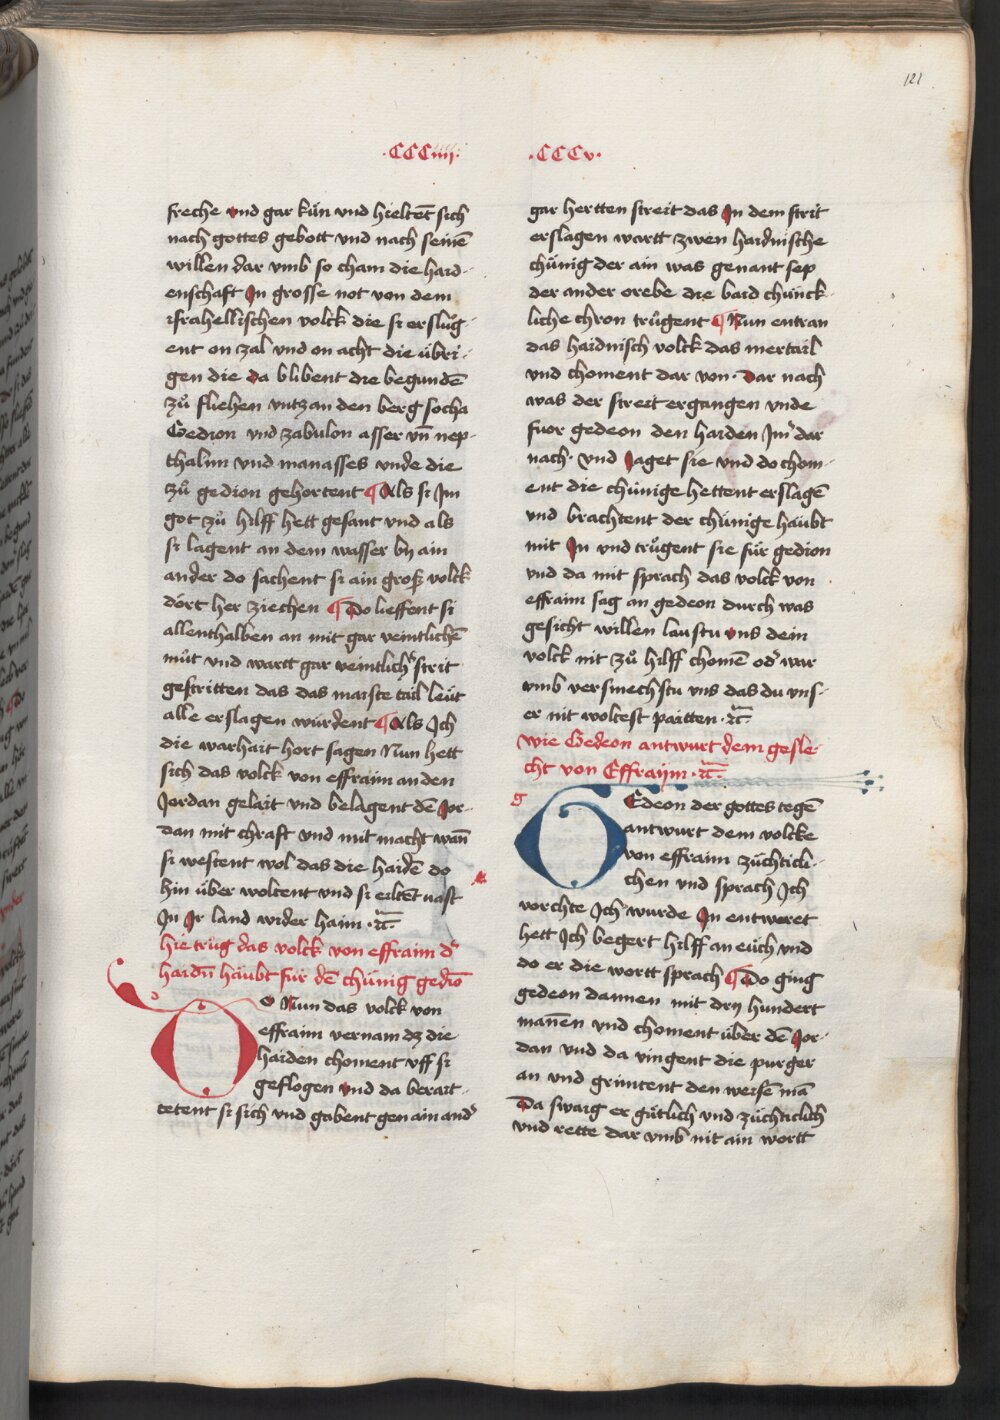 121
·CCCiiij·
freche vnd gar kün vnd hieltēt sich
nach gottes gebott vnd nach seinē
willen dar vmb so cham die haid-
enschaft In grosse not von dem
israhellischen volck die si erslůg-
ent on zal vnd on acht die übri-
gen die da blibent die begundē
zů fliehen vntz an den berg socha
Gedion vnd zabulon asser vn̄ nep-
thalim vnd manasses vnde die
zů gedion gehortent ¶ Als si Im
got zů hilff hett gesant vnd als
si lagent an dem wasser by ain
ander do sachent si ain groß volck
dört her ziechen ¶ Do lieffent si
allenthalben an mit gar veintlichē
můt vnd wartt gar veintlichs strit
gestritten das das maiste tail leüt
alle erslagen wurdent ¶ Als Ich
die warhait hort sagen Nun hett
sich das volck von effraim an den
Jordan gelait vnd belagent dē Jor-
dan mit chraft vnd mit macht wan̄
si westent wol das die haidē do
hin über woltent vnd si eiltēt vast
In Ir land wider haim · ꝛc̄
hie trůg das volck von effraim dˢ
haidn̄ häubt für dē chünig gedio
DO Nun das volck von
effraim vernam dz die
haiden choment vff si
geflogen vnd da berait-
tetent si sich vnd gabent gen ain andˢ
·CCCv·
gar hertten streit das In dem strit
erslagen wartt zwen haidnische
chünig der ain was genant sep
der ander orebe die baid chünck-
liche chron trůgent ¶ Nun entran
das haidnisch volck das mertail
vnd choment dar von· Dar nach
was der streit ergangen vnde
fuor gedeon den haiden Im̄ dar
nach· vnd Jaget sie vnd do chom-
ent die chünige hettent erslagē
vnd brachtent der chünige häubt
mit In vnd trůgent sie für gedion
vnd da mit sprach das volck von
effraim sag an gedeon durch was
gesicht willen laustu vns dein
volck nit zů hilff chomē odˢ war
vmb versmechstu vns das du vns-
er nit woltest paitten · ꝛc̄
wie Gedeon antwurt dem gesle-
cht von Effraym · ꝛc̄
GEdeon der gottes tegē
antwurt dem volcke
von effraim züchticli-
chen vnd sprach Ich
vorchte Ich wurde In entweret
hett Ich begert hilff an eüch vnd
do er die wortt sprach ¶ Do ging
gedeon dannen mit dry hundert
manēn vnd choment über dē Jor-
dan vnd da vingent die purger
an vnd grüntent den weisē mā
Da swaig er gütlich vnd züchticlich
vnd rette dar vmb nit ain wortt